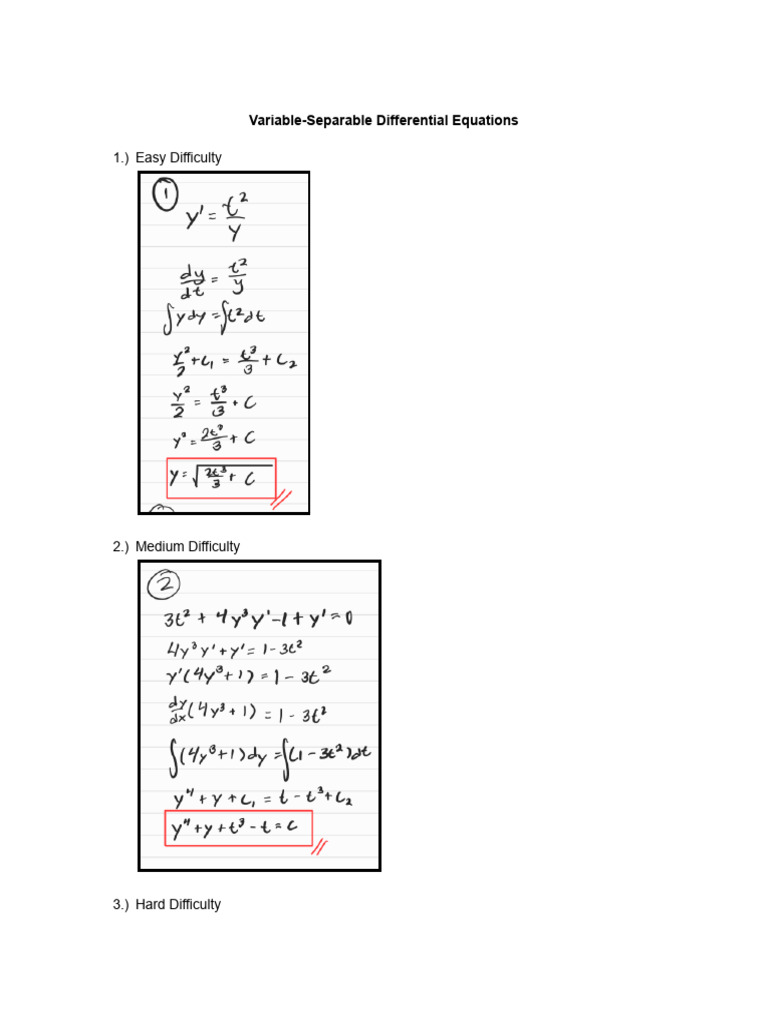 Variable-Separable Differential Equations
1.) Easy Difficulty
1
y' = t²/y
dy/dt = t²/y
∫y dy = ∫t² dt
y²/2 + C₁ = t³/3 + C₂
y²/2 = t³/3 + C
y² = 2t³/3 + C
y = √(2t³/3 + C)
2.) Medium Difficulty
2
3t² + 4y³y' - 1 + y' = 0
4y³y' + y' = 1 - 3t²
y'(4y³ + 1) = 1 - 3t²
dy/dx (4y³ + 1) = 1 - 3t²
∫(4y³ + 1) dy = ∫(1 - 3t²) dt
y⁴ + y + C₁ = t - t³ + C₂
y⁴ + y + t³ - t = C
3.) Hard Difficulty